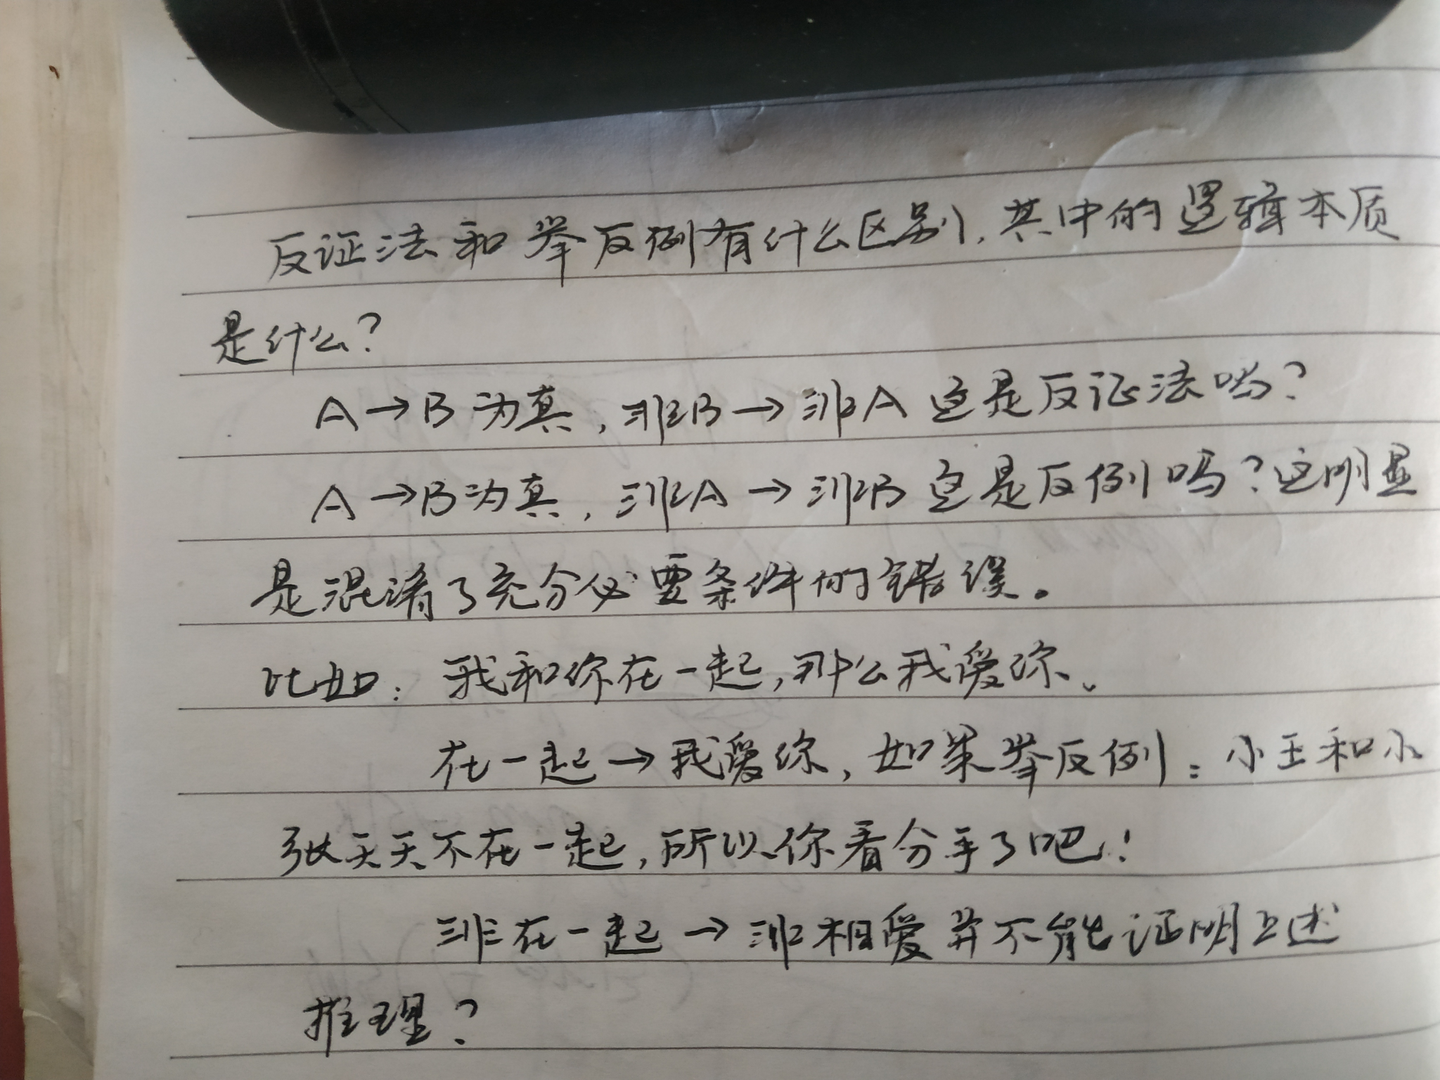 反证法和举反例有什么区别,其中的逻辑本质
是什么?
A→B为真,非B→非A 这是反证法吗?
A→B为真,非A→非B 这是反例吗?这明显
是混淆了充分必要条件的错误。
比如:我和你在一起,那么我爱你。
在一起→我爱你,如果举反例:小王和小
张天天不在一起,所以你看分手了吧!
非在一起→非相爱并不能证明上述
推理?